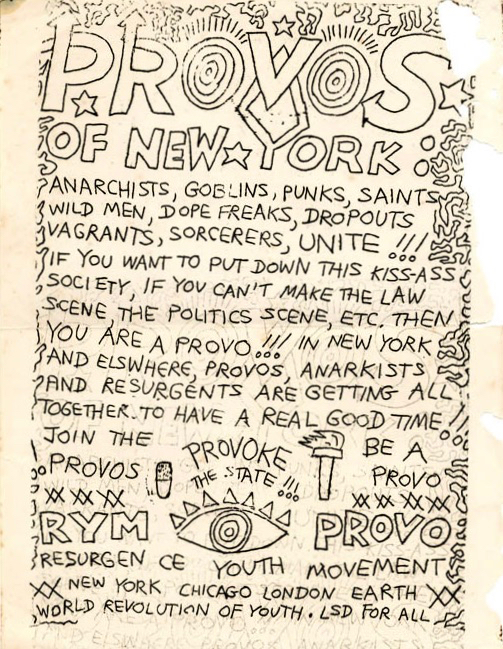 PROVOS
OF NEW YORK
ANARCHISTS, GOBLINS, PUNKS, SAINTS
WILD MEN, DOPE FREAKS, DROPOUTS
VAGRANTS, SORCERERS, UNITE !!!
IF YOU WANT TO PUT DOWN THIS KISS-ASS
SOCIETY, IF YOU CAN'T MAKE THE LAW
SCENE, THE POLITICS SCENE, ETC. THEN
YOU ARE A PROVO !!! IN NEW YORK
AND ELSWHERE, PROVOS, ANARKISTS
AND RESURGENTS ARE GETTING ALL
TOGETHER. TO HAVE A REAL GOOD TIME!!
JOIN THE
PROVOS
PROVOKE
THE STATE !!!
BE A
PROVO
XXXX
XXXX
RYM
PROVO
RESURGEN CE YOUTH MOVEMENT
XX NEW YORK CHICAGO LONDON EARTH XX
WORLD REVOLUTION OF YOUTH. LSD FOR ALL